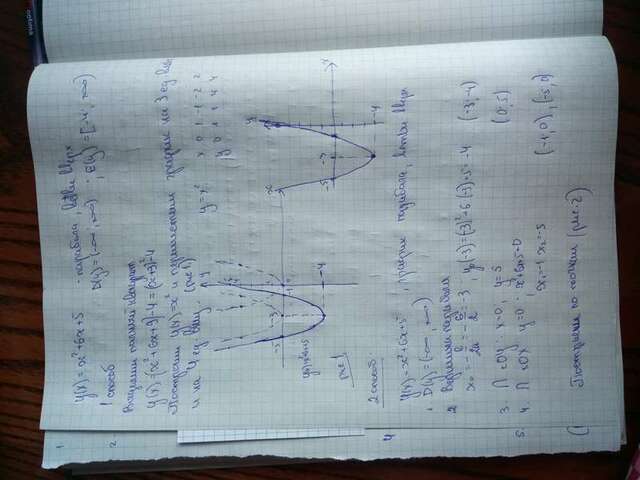 y(x) = x²+6x+5 - парабола, ветви вверх
1 способ
D(y) = (-∞; +∞) ; E(y) = [-4; +∞)
Выделим полный квадрат
y(x) = (x²+6x+9)-4 = (x+3)²-4
Построим y(x)=x² и переместим график на 3 ед. влево
и на 4 ед. вниз. (рис 1)
y = x²
x 0 1 -1 -2 2
y 0 1 1 4 4
-5 -3
-4
рис 1
-5 -3
-4
2 способ
y(x) = x²+6x+5, график парабола, ветви вверх
1. D(y) = (-∞; +∞)
2. Вершина параболы
x₀ = -b/2a = -6/2 = -3, y(-3) = (-3)²+6·(-3)+5 = -4 (-3; -4)
3. ∩ с OY: x=0, y=5 (0; 5)
4. ∩ с OX y=0: x²+6x+5=0
x₁=-1 x₂=-5 (-1; 0), (-5; 0)
Построим по точкам (рис. 2)